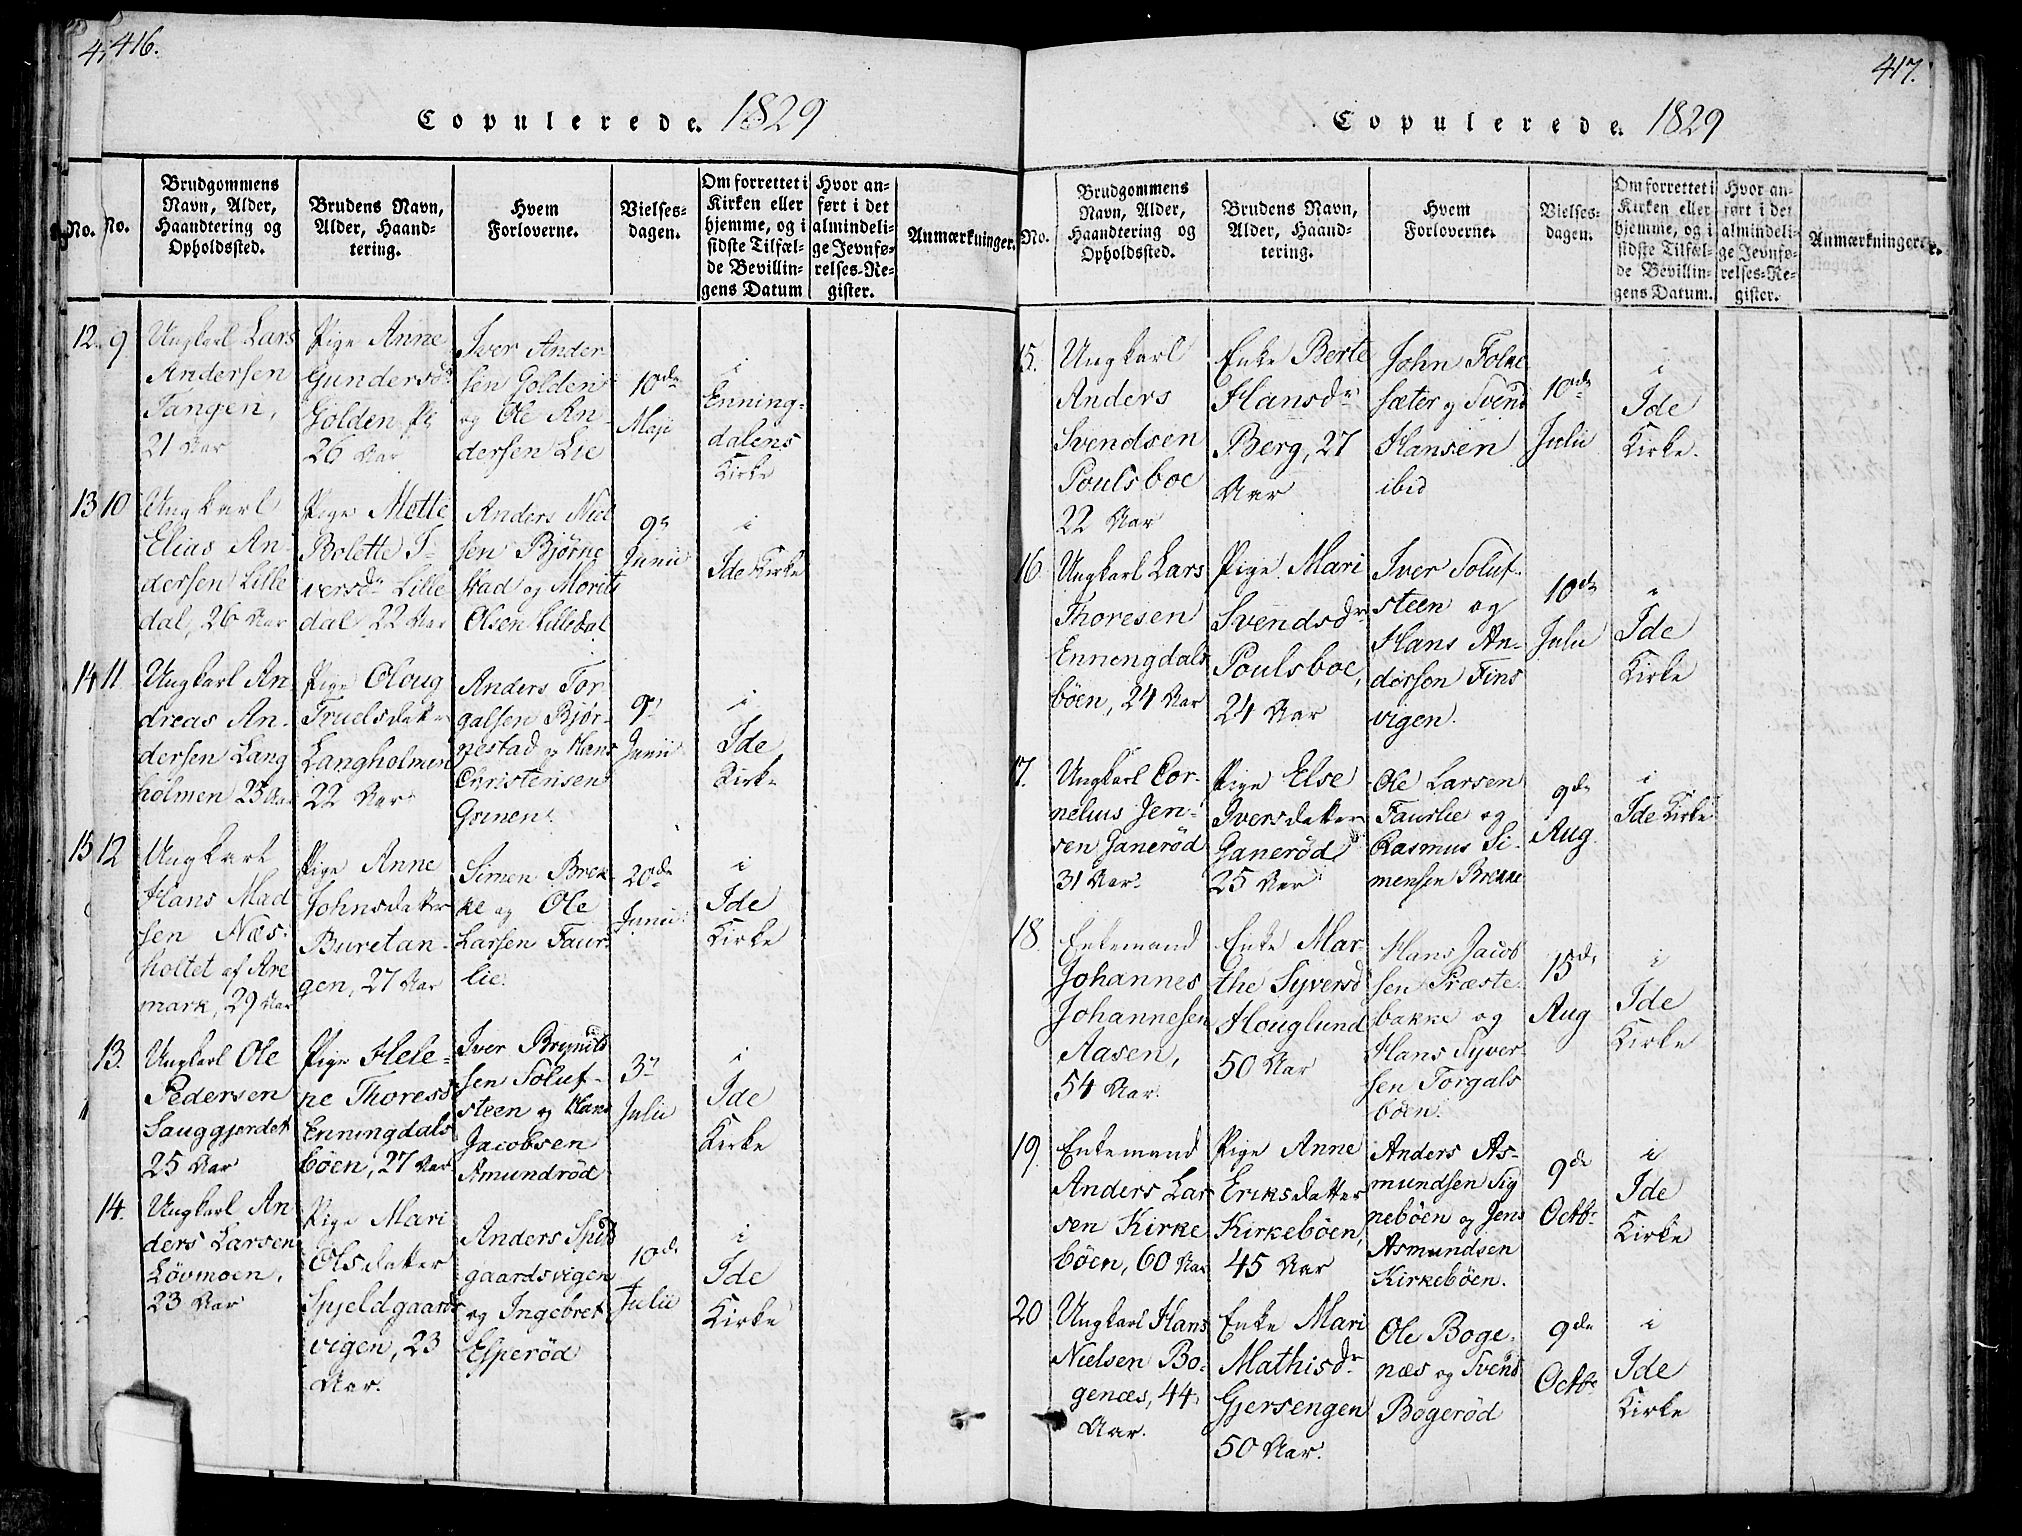 416.
Copulerede. 1829
No.
Brudgommens
Navn, Alder,
Haandtering og
Opholdssted.
Brudens Navn,
Alder, Haand-
tering.
Hvem
Forloverne.
Vielses-
dagen.
Om forrettet i
Kirken eller
hjemme, og i
sidste Tilfæl-
de Bevillin-
gens Datum
Hvor an-
ført i det
almindeli-
ge Jevnfø-
relses-Re-
gister.
Anmærkninger.
9
Ungkarl Lars
Andersen
Tangen,
21 Aar
Pige Anne
Gundersdr
Golden
26 Aar
Iver Ander
sen Golden
og Ole An-
dersen Lie
10de
Maji
i
Enning-
dalens
Kirke
10
Ungkarl
Elias An-
dersen Lille
dal, 26 Aar
Pige Mette
Bolette I-
versdr Lille
dal 22 Aar
Anders Niel
sen Bjørne
stad og Morits
Olsen Lilledal
9de
Junii
i
Ide Kirke
11
Ungkarl An-
dreas An-
dersen Lang
holmen 23 Aar
Pige Oloug
Truelsdatter
Langholmen
22 Aar
Anders Tor
galsen Bjør-
nestad og Hans
Christensen
Grimen
9de
Junii
i
Ide
Kirke
12
Ungkarl
Hans Mad
sen Næs-
holtet af Are
mark, 29 Aar
Pige Anne
Johnsdatter
Buretan-
gen, 27 Aar
Simen Brek
ke og Ole
Larsen Faur-
lie.
20de
Junii
i
Ide
Kirke
13.
Ungkarl Ole
Pedersen
Sauggjerdet
25 Aar
Pige Hele-
ne Thoresdr
Enningdals
böen, 27 Aar
Iver Brynild
sen Soluf-
steen og Hans
Jacobsen
Amundröd
3de
Julii
i
Ide
Kirke
14.
Ungkarl An
ders Larsen
Lövmoen,
23 Aar
Pige Mari
Olsdatter
Spjeldgaards
vigen, 23
Aar.
Anders Spield
gaardsvigen
og Ingebret
Esperød
10de
Julii
i
Ide
Kirke
417.
Copulerede. 1829
No.
Brudgommens
Navn, Alder,
Haandtering og
Opholdssted.
Brudens Navn,
Alder, Haand-
tering.
Hvem
Forloverne.
Vielses-
dagen.
Om forrettet i
Kirken eller
hjemme, og i
sidste Tilfæl-
de Bevillin-
gens Datum.
Hvor an-
ført i det
almindeli-
ge Jevnfø-
relses-Re-
gister.
Anmærkninger.
15.
Ungkarl
Anders
Svendsen
Poulsboe
22 Aar
Enke Berte
Hansdr
Berg, 27
Aar
John Folke
sæter og Svend
Hansen
ibid
10de
Julii
i
Ide
Kirke.
16
Ungkarl Lars
Thoresen
Enningdals
böen, 24 Aar
Pige Mari
Svendsdr
Poulsboe,
24 Aar
Iver Soluf-
steen og
Hans An-
dersen Fins
vigen.
10de
Julii
i
Ide
Kirke
17.
Ungkarl Cor-
nelius Jen-
sen Ganerød
31 Aar
Pige Else
Iversdatter
Ganerød
25 Aar
Ole Larsen
Faurlie og
Rasmus Si-
mensen Brekke
9de
Aug.
i
Ide Kirke
18.
Enkemand
Johannes
Johannesen
Aasen,
54 Aar.
Enke Mar-
the Syversd
Houglund
50 Aar
Hans Jacob
sen Præste-
bakke og
Hans Syver-
sen Torgals
böen.
15de
Aug
i
Ide
Kirke
19
Enkemand
Anders Lar
sen Kirke
böen, 60 Aar
Pige Anne
Eriksdatter
Kirkebøen,
45 Aar
Anders As-
mundsen Sig
nebøen og Jens
Asmundsen
Kirkebøen.
9de
Octbr
i
Ide
Kirke
20
Ungkarl Hans
Nielsen Bo-
genæs, 44
Aar.
Enke Mari
Mathisdr
Gjersengen
50 Aar.
Ole Boge-
næs og Svend
Bogerød
9de
Octbr
i
Ide
Kirke